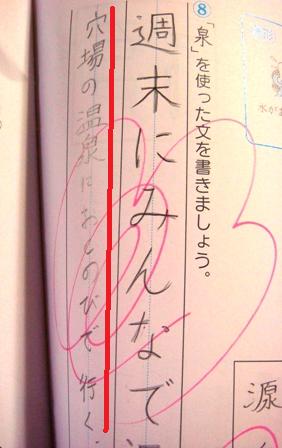 ⑧「泉」を使った文を書きましょう。
週末にみんなで
穴場の温泉におしのびで行く。
源